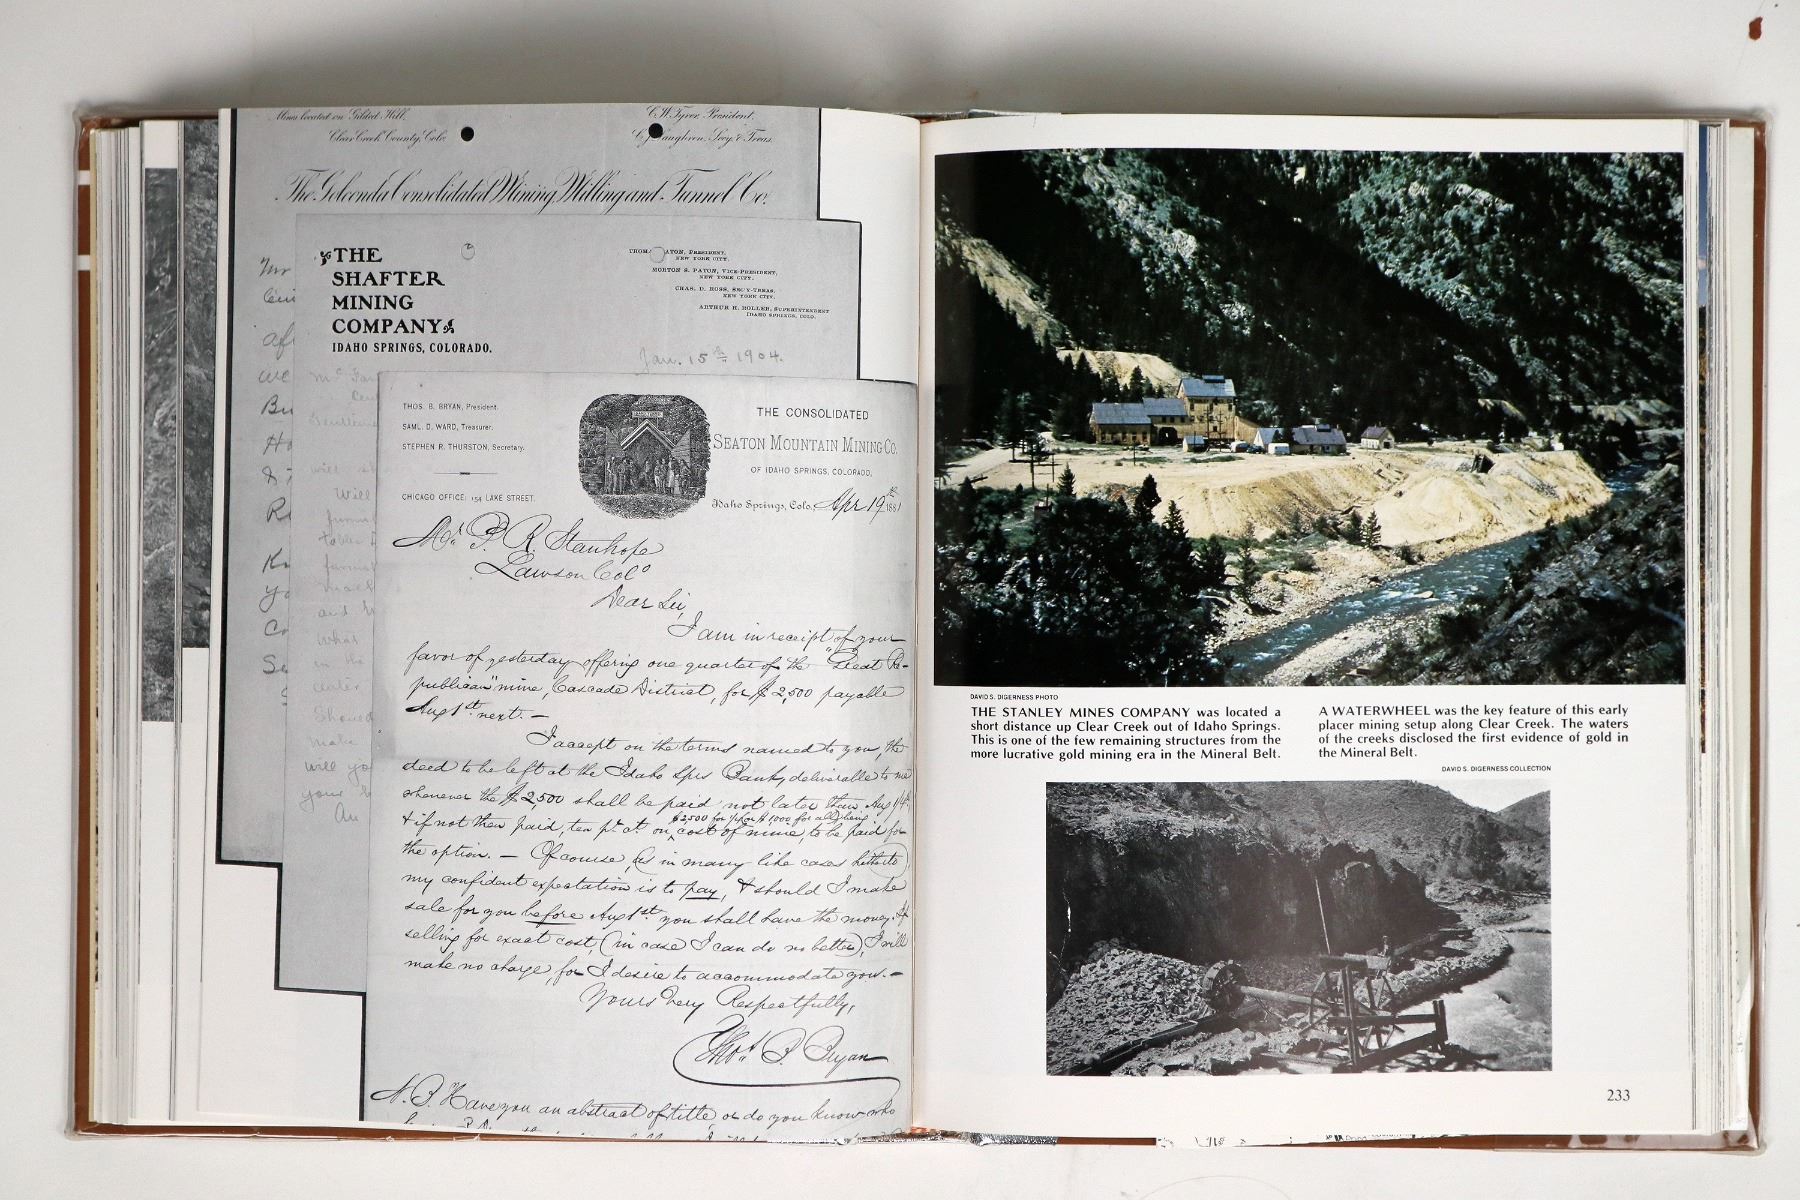 Mines located on Gilded Hill,
Clear Creek County, Colo.
C. W. Tyres, President.
Secy. & Treas.
The Golconda Consolidated Mining, Milling and Tunnel Co.
THE
SHAFTER
MINING
COMPANY
IDAHO SPRINGS, COLORADO.
ATON, PRESIDENT,
NEW YORK CITY.
MORTON S. PATON, VICE-PRESIDENT,
NEW YORK CITY.
CHAS. D. ROSS, SECY-TREAS.
NEW YORK CITY.
ARTHUR H. ROLLER, SUPERINTENDENT
IDAHO SPRINGS, COLO.
Jan. 15th 1904.
THOS. B. BRYAN, President.
SAML. D. WARD, Treasurer.
STEPHEN R. THURSTON, Secretary.
CHICAGO OFFICE: 154 LAKE STREET.
THE CONSOLIDATED
SEATON MOUNTAIN MINING CO.
OF IDAHO SPRINGS, COLORADO,
Idaho Springs, Colo., Apr 19th 1881
Mr. P. R. Stanhope
Lawson Colo
Dear Sir,
I am in receipt of your
favor of yesterday offering one quarter of the "Great Re-
publican" mine, Cascade District, for $2,500 payable
Aug 1st next. —
I accept on the terms named to you, the
deed to be left at the Idaho Spgs Bank, deliverable to me
whenever the $2,500 shall be paid not later than Aug
& if not then paid, ten pr ct. on cost of mine, to be paid for
the option. — Of course, (as in many like cases hitherto)
my confident expectation is to pay, & should I make
sale for you before Aug 1st you shall have the money. If
selling for exact cost, (in case I can do no better), I will
make no charge, for I desire to accommodate you. —
Yours Very Respectfully,
Thos B Bryan
N.B. Have you an abstract of title, or do you know who
DAVID S. DIGERNESS PHOTO
THE STANLEY MINES COMPANY was located a
short distance up Clear Creek out of Idaho Springs.
This is one of the few remaining structures from the
more lucrative gold mining era in the Mineral Belt.
A WATERWHEEL was the key feature of this early
placer mining setup along Clear Creek. The waters
of the creeks disclosed the first evidence of gold in
the Mineral Belt.
DAVID S. DIGERNESS COLLECTION
233